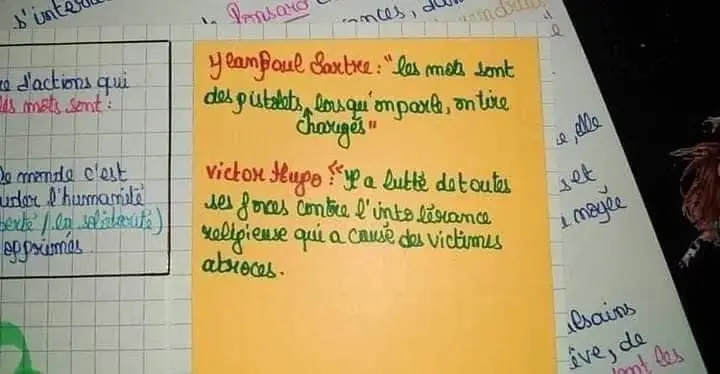 s'inte
Ronsard
ances, d
d'actions qui
mots sont :
monde c'est
l'humanité
opprimés
Jean Paul Sartre : "les mots sont
des pistolets, lorsqu'on parle, on tire
chargés"
Victor Hugo : "Il a lutté de toutes
ses forces contre l'intolérance
religieuse qui a causé des victimes
atroces.
e, elle
et
moyée
ève, de
les